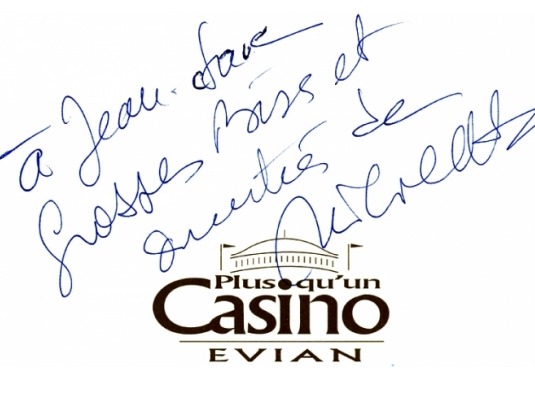 à Jean-Luc
Grosses Bises et
amitiés de
Plus qu'un
Casino
EVIAN